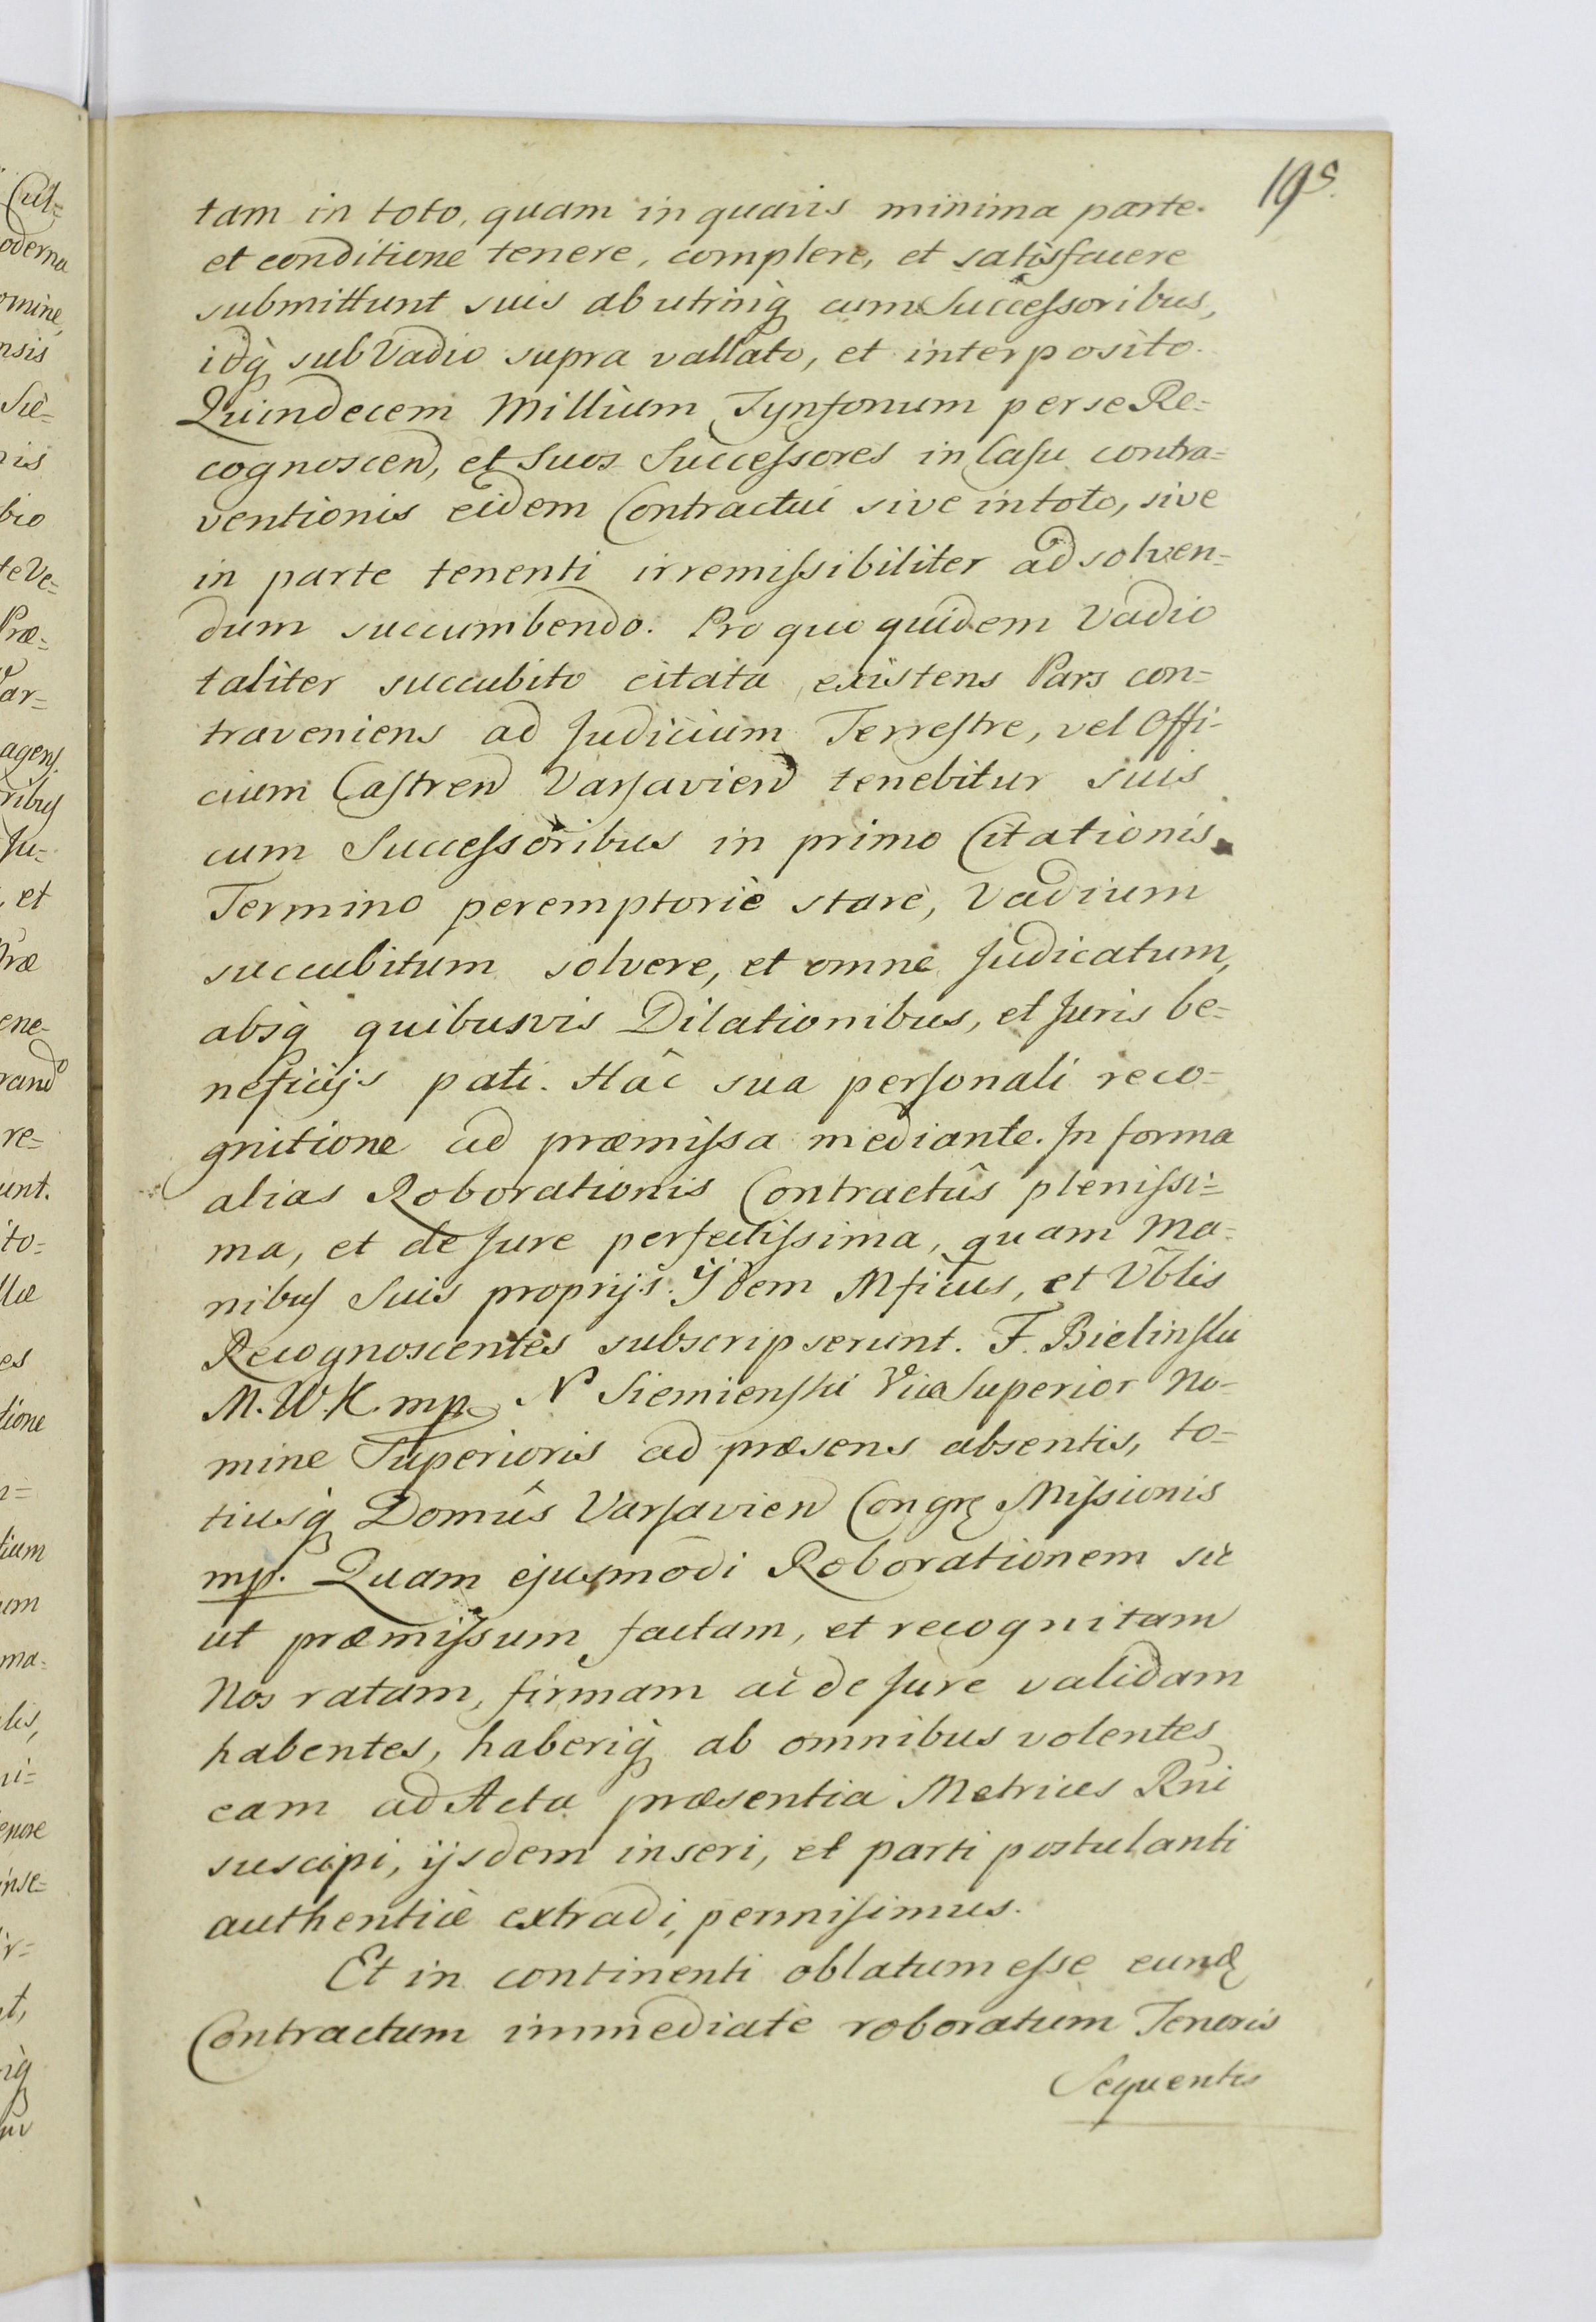 195.
tam in toto, quam in quavis minima parte.
et conditione tenere, complere, et satisfacere
submittunt suis ab utrinq̃ cum Successoribus,
idq̃ sub Vadio supra vallato, et interposito.
Quindecem Millium Tynfonum per se Re=
cognoscend, et Suos Successores in Casu contra=
ventionis eidem Contractui sive in toto, sive
in parte tenenti irremissibiliter ad solven=
dum succumbendo. Pro quo quidem Vadio
taliter succubito citata existens Pars con=
traveniens ad Judicium Terrestre, vel Offi-
cium Castrend Varsaviend tenebitur suis
cum Successoribus in primo Citationis
Termino peremptoriè stare, Vadium
succubitum solvere, et omne Judicatum,
absq̃ quibusvis Dilationibus, et Juris be=
neficijs pati. Hâc sua personali reco=
gnitione ad præmissa mediante. In forma
alias Roborationis Contractûs plenissi=
ma, et de Jure perfectissima, quam Ma=
nibus Suis proprijs Ijdem Mficus, et Vблis
Recognoscentes subscripserunt. F. Bielinski
M.W.K. mp. N Siemienski Vice Superior No-
mine Superioris ad præsens absentis, to=
tiusq̃ Domûs Varsaviend Congrę Missionis
mp. Quam ejusmodi Roborationem sic
ut præmissum factam, et recognitam
Nos ratam, firmam ac de Jure validam
habentes, haberiq̃ ab omnibus volentes
eam ad Acta præsentia Metrices Rni
suscipi, ijsdem inseri, et parti postulanti
authenticè extradi, permisimus.
Et in continenti oblatum esse eund
Contractum immediatè roboratum Tenoris
Sequentis